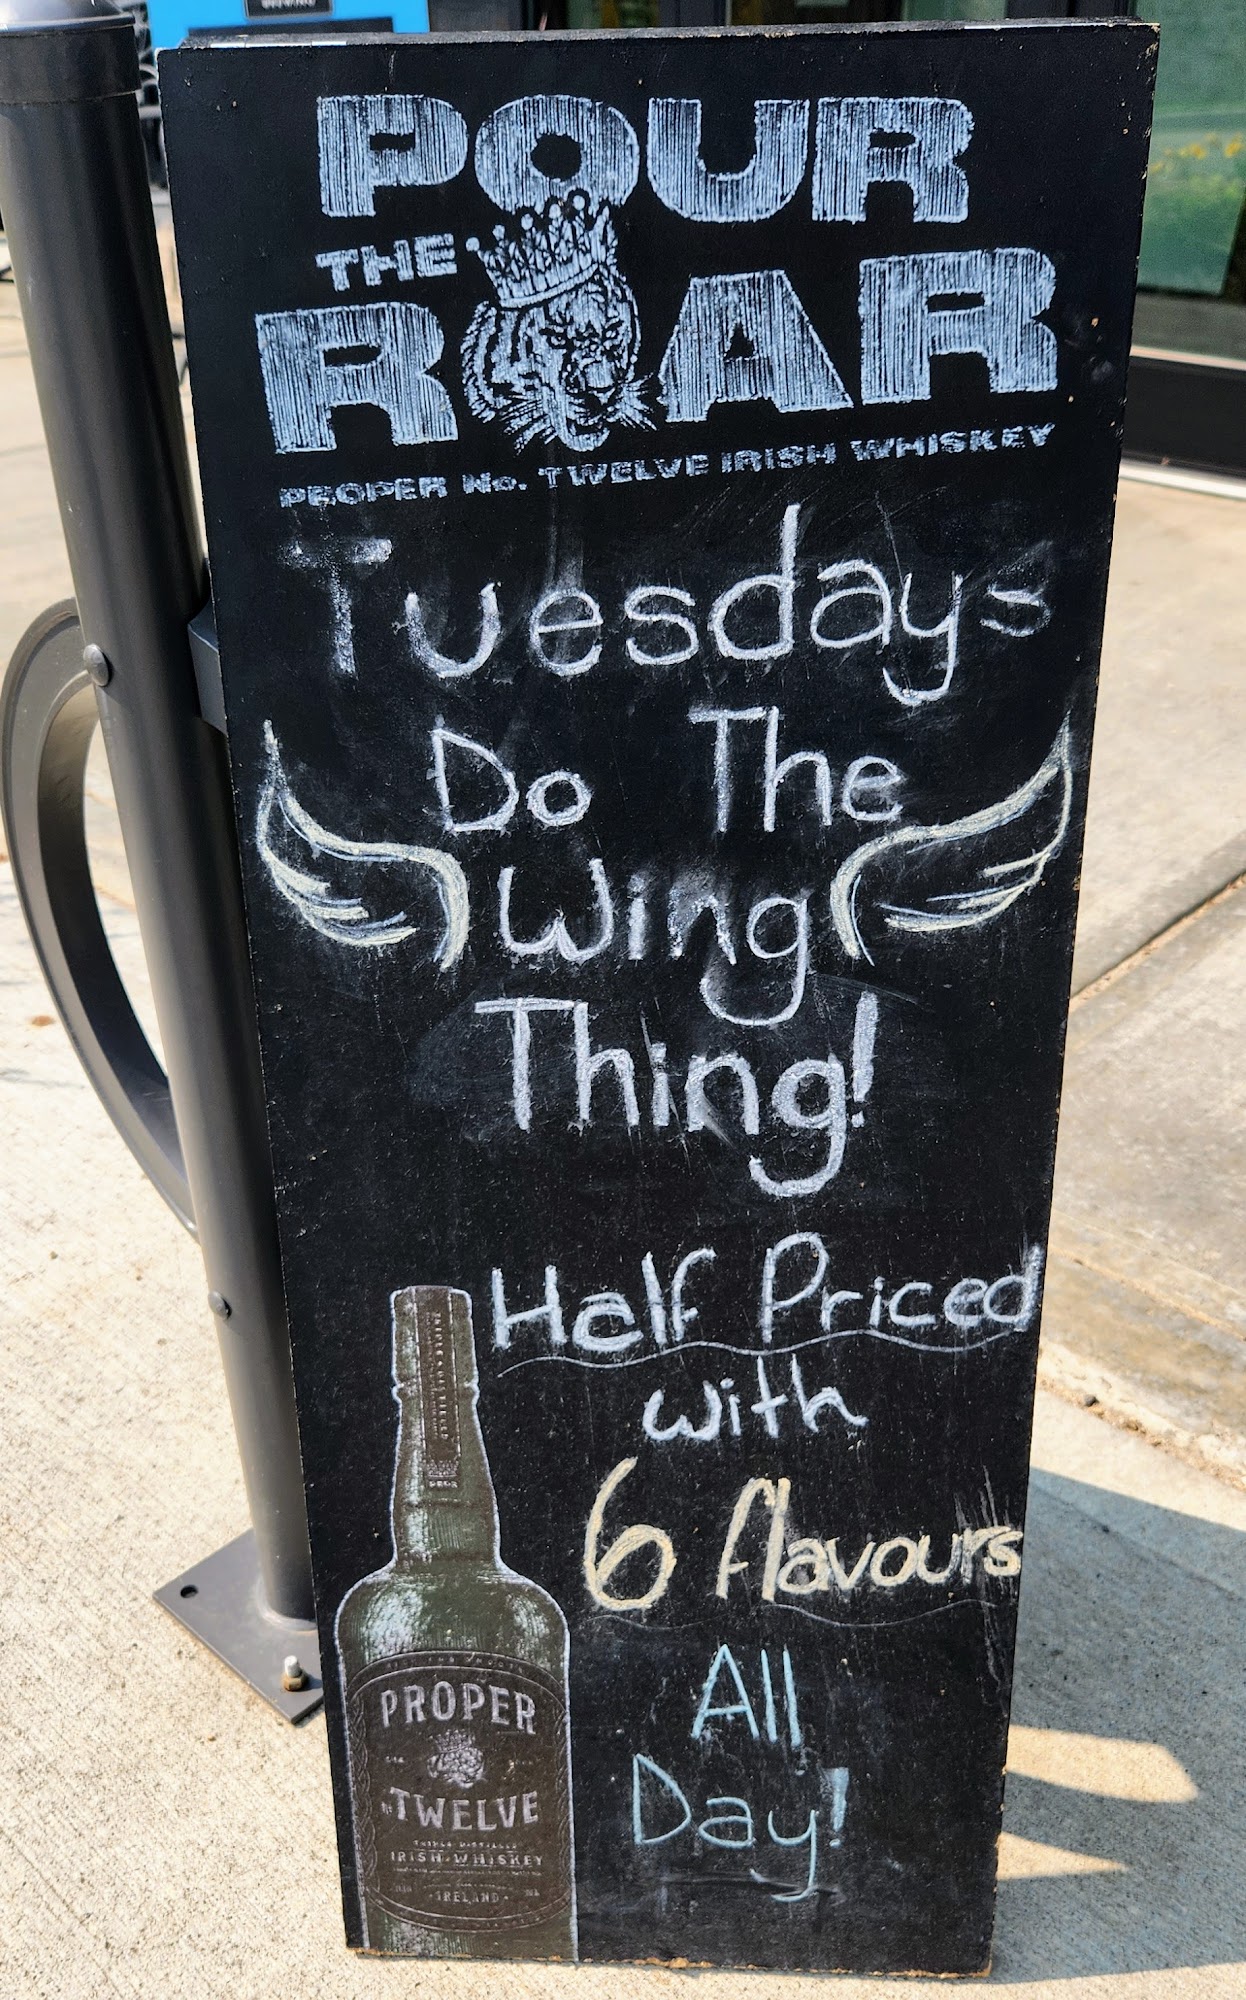 POUR
THE
ROAR
PROPER No. TWELVE IRISH WHISKEY
Tuesdays
Do The
Wing
Thing!
Half Priced
with
6 flavours
All
Day!
PROPER
No TWELVE
TRIPLE DISTILLED
IRISH WHISKEY
IRELAND